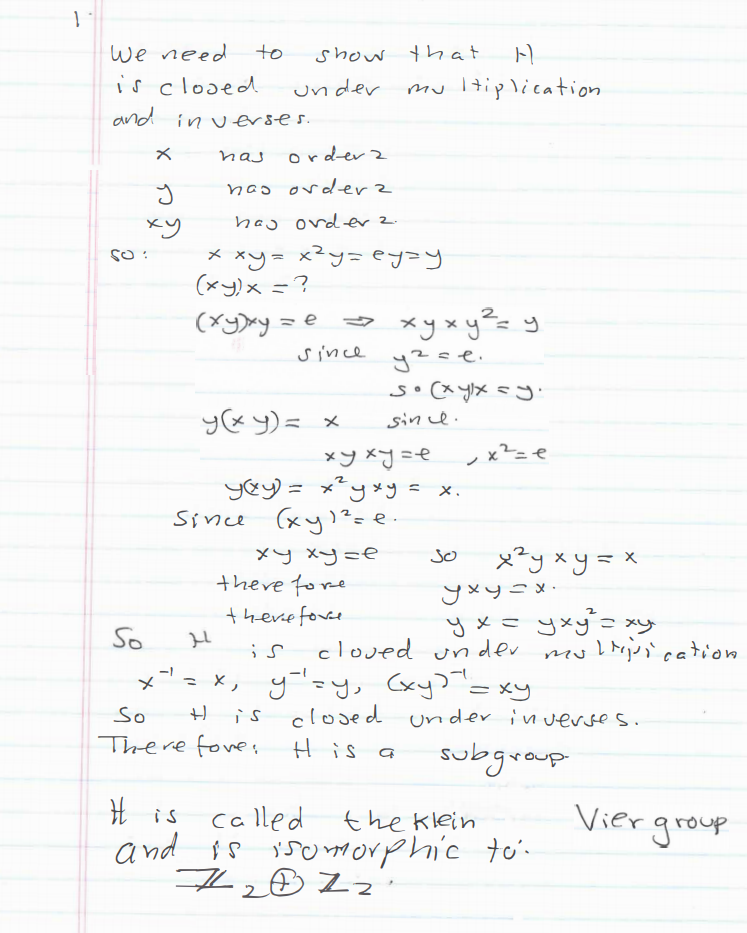 1.
We need to show that H
is closed under multiplication
and inverses.
x has order 2
y has order 2
xy has order 2.
so: x xy = x²y = ey = y
(xy)x = ?
(xy)xy = e ⇒ xyxy² = y
since y² = e.
so (xy)x = y.
y(xy) = x since.
xy xy = e , x² = e
y(xy) = x²yxy = x.
Since (xy)² = e.
xy xy = e so x²yxy = x
therefore yxy = x.
therefore yx = yxy² = xy
So H is closed under multiplication
x⁻¹ = x, y⁻¹ = y, (xy)⁻¹ = xy
So H is closed under inverses.
Therefore: H is a subgroup
H is called the Klein Viergroup
and is isomorphic to:
ℤ₂ ⊕ ℤ₂.